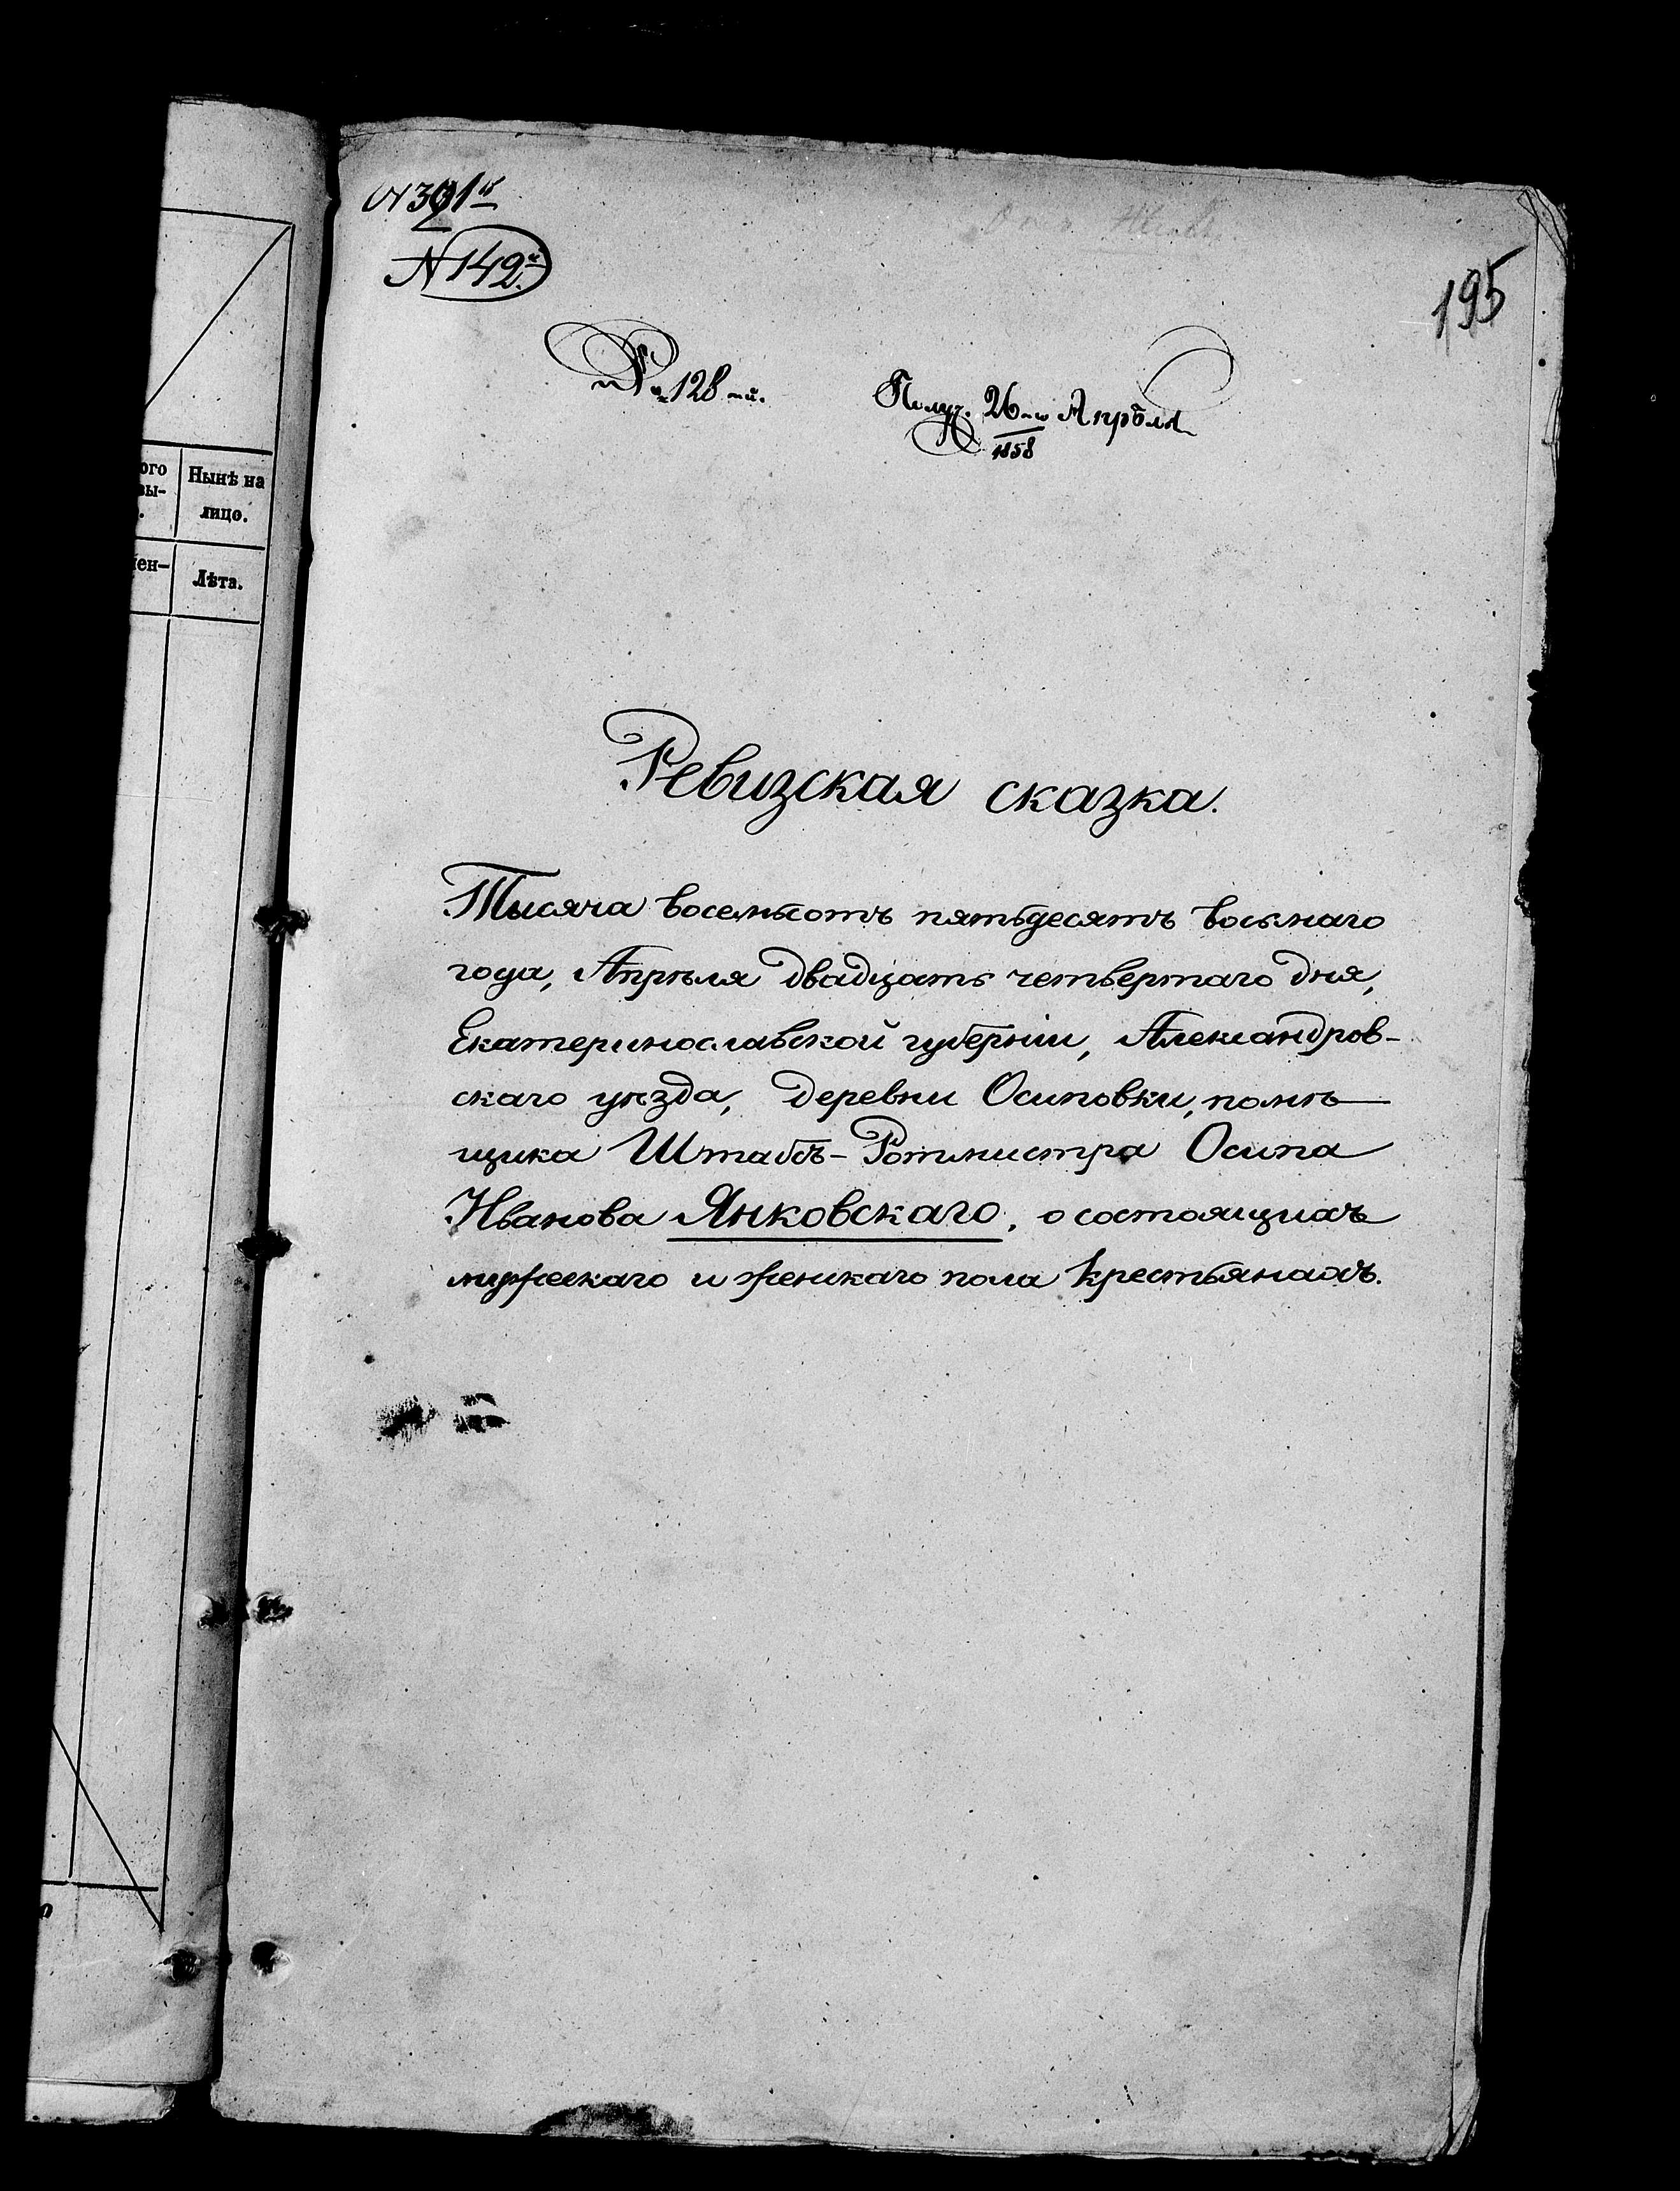 ого
вы-
Нынѣ на
лицо.
Лѣта.
№ 391й
№ 142й
195
№ 128-й.
Получ. 26-го Апрѣля
1858
Ревизская сказка.
Тысяча восемьсотъ пятьдесятъ восьмаго
года, Апрѣля двадцать четвертаго дня,
Екатеринославской губерніи, Александров-
скаго уѣзда, деревни Осиповки, помѣ-
щика Штабсъ-Ротмистра Осипа
Иванова Янковскаго, о состоящихъ
мужескаго и женскаго пола крестьянахъ.